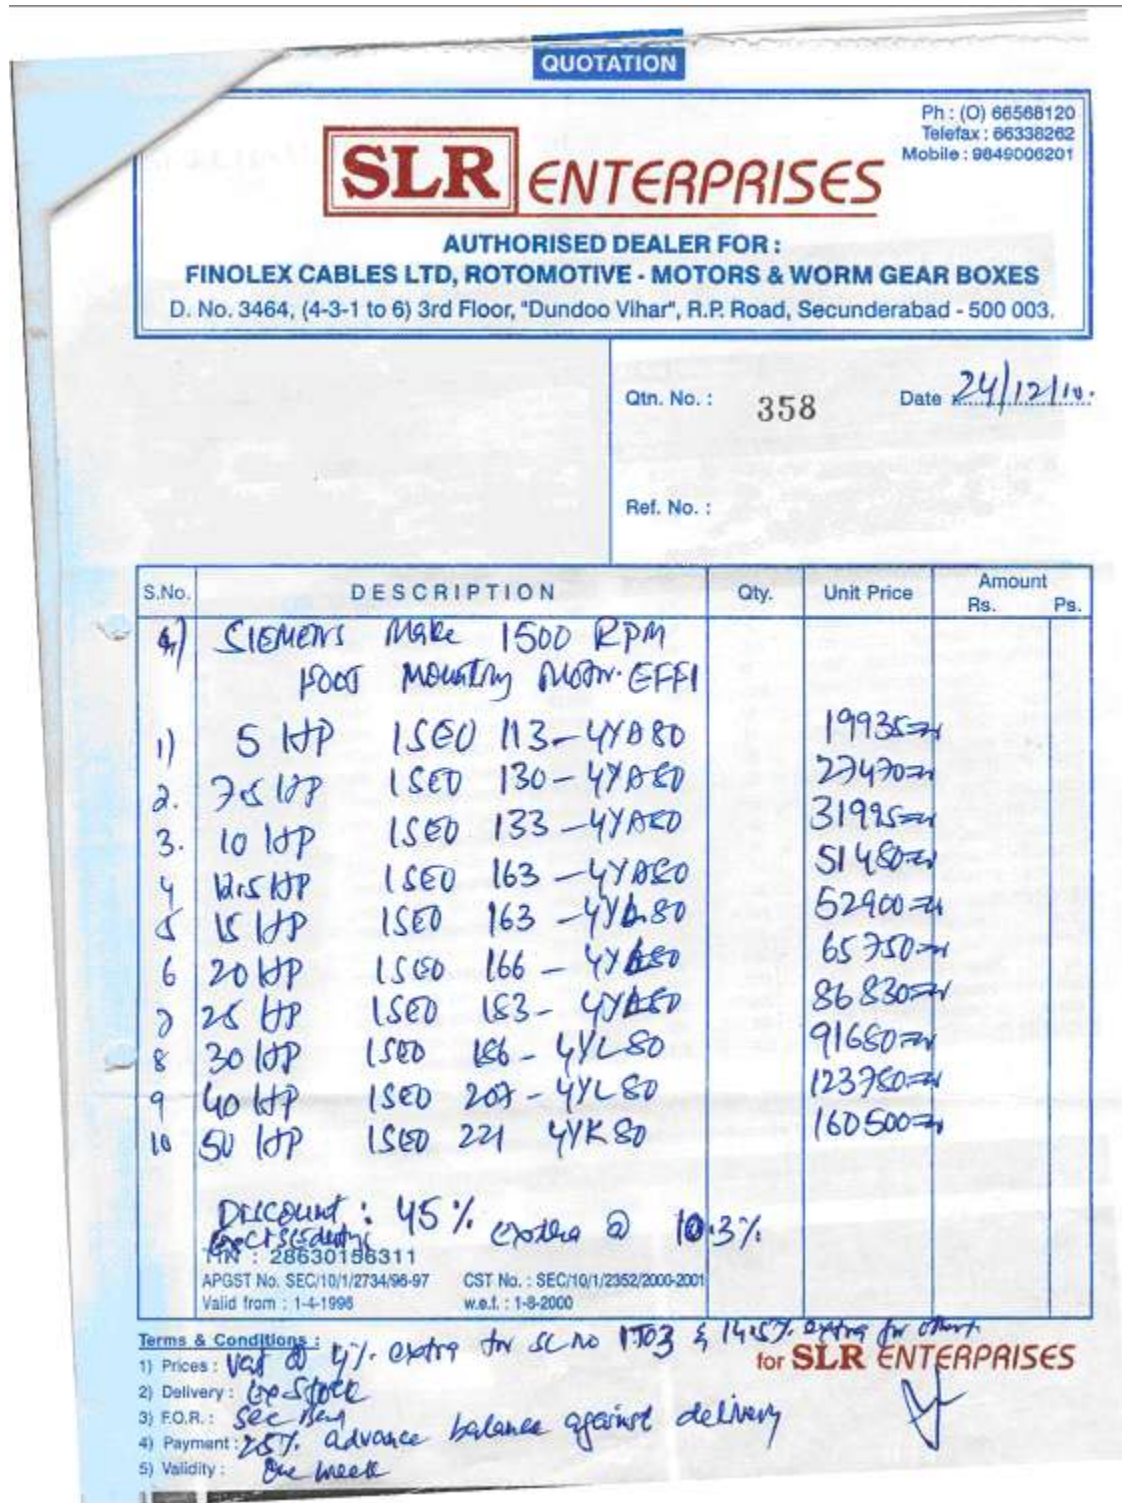 QUOTATION
Ph : (O) 66568120
Telefax : 66338262
Mobile : 9849006201
SLR ENTERPRISES
AUTHORISED DEALER FOR :
FINOLEX CABLES LTD, ROTOMOTIVE - MOTORS & WORM GEAR BOXES
D. No. 3464, (4-3-1 to 6) 3rd Floor, "Dundoo Vihar", R.P. Road, Secunderabad - 500 003.
Qtn. No. : 358 Date : 24/12/10.
Ref. No. :
S.No. DESCRIPTION Qty. Unit Price Amount Rs. Ps.
SIEMENS Make 1500 RPM
Foot Mounting Motor. EFF1
1) 5 HP 1SE0 113-4YA80 19935=
2. 7.5 HP 1SE0 130-4YA80 27470=
3. 10 HP 1SE0 133-4YA80 31995=
4 12.5 HP 1SE0 163-4YA80 51480=
5 15 HP 1SE0 163-4Y80 52900=
6 20 HP 1SE0 166- 65750=
7 25 HP 1SE0 183- 86830=
8 30 HP 1SE0 186-4YL80 91680=
9 40 HP 1SE0 207-4YL80 123780=
10 50 HP 1SE0 221 4YK80 160500=
Discount : 45%
extra @ 10.3%
TIN : 28630156311
APGST No. SEC/10/1/2734/96-97 CST No. : SEC/10/1/2352/2000-2001
Valid from : 1-4-1996 w.e.f. : 1-8-2000
Terms & Conditions :
1) Prices : Vat @ 4% extra for SL no 1 TO 3 & 14.5% extra for others.
for SLR ENTERPRISES
2) Delivery : Ex-Stock
3) F.O.R. : Sec
4) Payment : 25% advance balance against delivery
5) Validity : One week